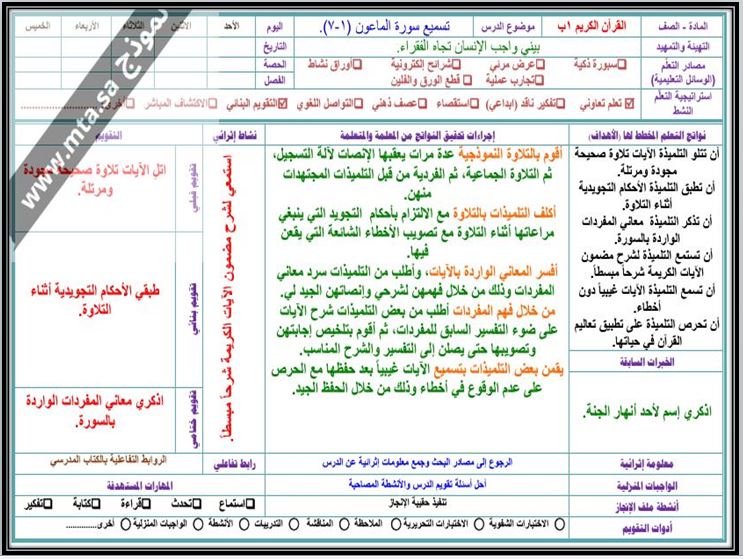 المادة - الصف
القرآن الكريم ١ب
موضوع الدرس
تسميع سورة الماعون (١-٧).
اليوم
الأحد
الاثنين
الثلاثاء
الأربعاء
الخميس
التهيئة والتمهيد
بيني واجب الإنسان تجاه الفقراء.
التاريخ
مصادر التعلم
(الوسائل التعليمية)
سبورة ذكية
عرض مرئي
شرائح إلكترونية
أوراق نشاط
الحصة
تجارب عملية
قطع الورق والفلين
الفصل
استراتيجية التعلم
النشط
تعلم تعاوني
تفكير ناقد (ابداعي)
استقصاء
عصف ذهني
التواصل اللغوي
التقويم البنائي
الاكتشاف المباشر
أخرى
نواتج التعلم المخطط لها (الأهداف)
أن تتلو التلميذة الآيات تلاوة صحيحة
مجودة ومرتلة.
أن تطبق التلميذة الأحكام التجويدية
أثناء التلاوة.
أن تذكر التلميذة معاني المفردات
الواردة بالسورة.
أن تستمع التلميذة لشرح مضمون
الآيات الكريمة شرحاً مبسطاً.
أن تسمع التلميذة الآيات غيبياً دون
أخطاء.
أن تحرص التلميذة على تطبيق تعاليم
القرآن في حياتها.
الخبرات السابقة
اذكري إسم لأحد أنهار الجنة.
إجراءات تحقيق النواتج من المعلمة والمتعلمة
أقوم بالتلاوة النموذجية عدة مرات يعقبها الإنصات لآلة التسجيل،
ثم التلاوة الجماعية، ثم الفردية من قبل التلميذات المجتهدات
منهن.
أكلف التلميذات بالتلاوة مع الالتزام بأحكام التجويد التي ينبغي
مراعاتها أثناء التلاوة مع تصويب الأخطاء الشائعة التي يقعن
فيها.
أفسر المعاني الواردة بالآيات، وأطلب من التلميذات سرد معاني
المفردات وذلك من خلال فهمهن لشرحي وإنصاتهن الجيد لي.
من خلال فهم المفردات أطلب من بعض التلميذات شرح الآيات
على ضوء التفسير السابق للمفردات، ثم أقوم بتلخيص إجابتهن
وتصويبها حتى يصلن إلى التفسير والشرح المناسب.
يقمن بعض التلميذات بتسميع الآيات غيبياً بعد حفظها مع الحرص
على عدم الوقوع في أخطاء وذلك من خلال الحفظ الجيد.
نشاط إثرائي
استمعي لشرح مضمون الآيات الكريمة شرحاً مبسطاً.
التقويم
تقويم قبلي
اتل الآيات تلاوة صحيحة مجودة
ومرتلة.
تقويم بنائي
طبقي الأحكام التجويدية أثناء
التلاوة.
تقويم ختامي
اذكري معاني المفردات الواردة
بالسورة.
معلومة إثرائية
الرجوع إلى مصادر البحث وجمع معلومات إثرائية عن الدرس
رابط تفاعلي
الروابط التفاعلية بالكتاب المدرسي
الواجبات المنزلية
أحل أسئلة تقويم الدرس والأنشطة المصاحبة
المهارات المستهدفة
أنشطة ملف الإنجاز
تنفيذ حقيبة الإنجاز
استماع
تحدث
قراءة
كتابة
تفكير
أدوات التقويم
الاختبارات الشفوية
الاختبارات التحريرية
الملاحظة
المناقشة
التدريبات
الأنشطة
الواجبات المنزلية
أخرى..............
نموذج www.mta.sa